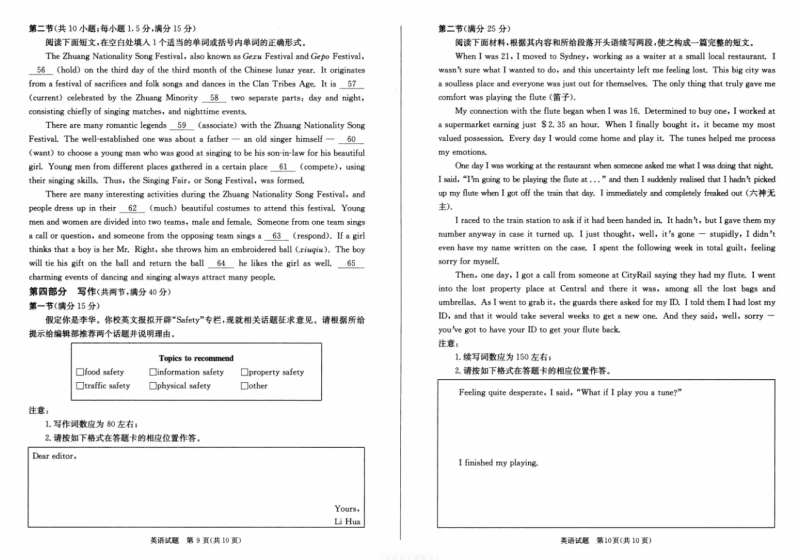 第二节(共 10 小题;每小题 1.5 分,满分 15 分)
阅读下面短文,在空白处填入 1 个适当的单词或括号内单词的正确形式。
The Zhuang Nationality Song Festival, also known as Gexu Festival and Gepo Festival,
56 (hold) on the third day of the third month of the Chinese lunar year. It originates
from a festival of sacrifices and folk songs and dances in the Clan Tribes Age. It is 57
(current) celebrated by the Zhuang Minority 58 two separate parts: day and night,
consisting chiefly of singing matches, and nighttime events.
There are many romantic legends 59 (associate) with the Zhuang Nationality Song
Festival. The well-established one was about a father — an old singer himself — 60
(want) to choose a young man who was good at singing to be his son-in-law for his beautiful
girl. Young men from different places gathered in a certain place 61 (compete), using
their singing skills. Thus, the Singing Fair, or Song Festival, was formed.
There are many interesting activities during the Zhuang Nationality Song Festival, and
people dress up in their 62 (much) beautiful costumes to attend this festival. Young
men and women are divided into two teams, male and female. Someone from one team sings
a call or question, and someone from the opposing team sings a 63 (respond). If a girl
thinks that a boy is her Mr. Right, she throws him an embroidered ball (xiuqiu). The boy
will tie his gift on the ball and return the ball 64 he likes the girl as well. 65
charming events of dancing and singing always attract many people.
第四部分 写作(共两节,满分 40 分)
第一节(满分 15 分)
假定你是李华。你校英文报拟开辟“Safety”专栏,现就相关话题征求意见。请根据所给
提示给编辑部推荐两个话题并说明理由。
Topics to recommend
□food safety □information safety □property safety
□traffic safety □physical safety □other
注意:
1. 写作词数应为 80 左右;
2. 请按如下格式在答题卡的相应位置作答。
Dear editor,
Yours,
Li Hua
英语试题 第 9 页(共 10 页)
第二节(满分 25 分)
阅读下面材料,根据其内容和所给段落开头语续写两段,使之构成一篇完整的短文。
When I was 21, I moved to Sydney, working as a waiter at a small local restaurant. I
wasn't sure what I wanted to do, and this uncertainty left me feeling lost. This big city was
a soulless place and everyone was just out for themselves. The only thing that truly gave me
comfort was playing the flute (笛子).
My connection with the flute began when I was 16. Determined to buy one, I worked at
a supermarket earning just $2.35 an hour. When I finally bought it, it became my most
valued possession. Every day I would come home and play it. The tunes helped me process
my emotions.
One day I was working at the restaurant when someone asked me what I was doing that night.
I said, “I'm going to be playing the flute at . . .” and then I suddenly realised that I hadn't picked
up my flute when I got off the train that day. I immediately and completely freaked out (六神无
主).
I raced to the train station to ask if it had been handed in. It hadn't, but I gave them my
number anyway in case it turned up. I just thought, well, it's gone — stupidly, I didn't
even have my name written on the case. I spent the following week in total guilt, feeling
sorry for myself.
Then, one day, I got a call from someone at CityRail saying they had my flute. I went
into the lost property place at Central and there it was, among all the lost bags and
umbrellas. As I went to grab it, the guards there asked for my ID. I told them I had lost my
ID, and that it would take several weeks to get a new one. And they said, well, sorry —
you've got to have your ID to get your flute back.
注意:
1. 续写词数应为 150 左右;
2. 请按如下格式在答题卡的相应位置作答。
Feeling quite desperate, I said, “What if I play you a tune?”
I finished my playing.
英语试题 第10页(共 10 页)